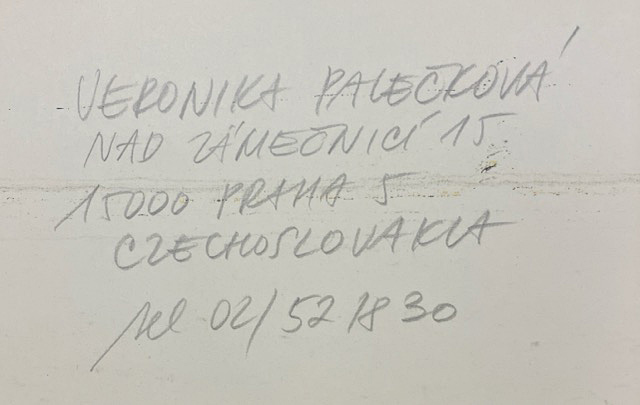 VERONIKA PALEČKOVÁ
NAD ZÁMEČNICÍ 15
15000 PRAHA 5
CZECHOSLOVAKIA
tel 02/52 18 30